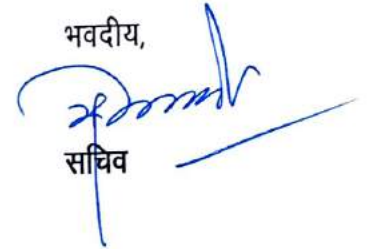 भवदीय,
सचिव